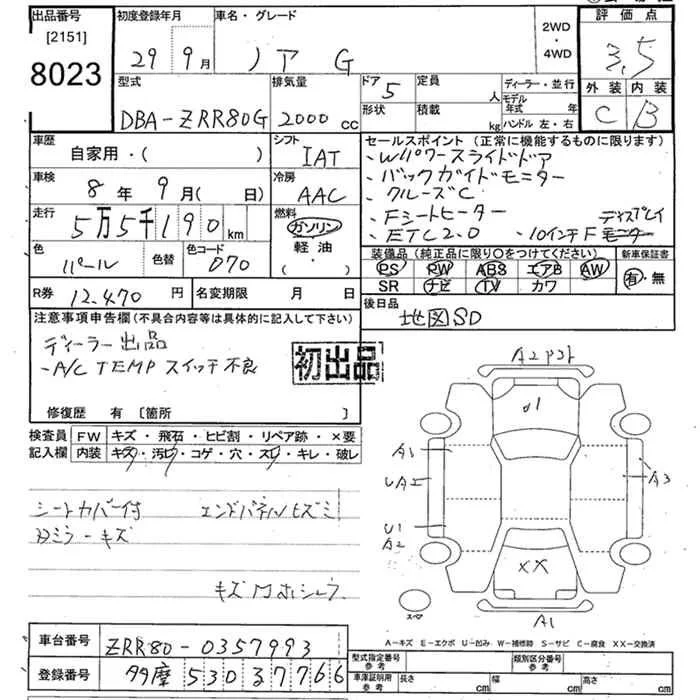 出品番号 初度登録年月 車名・グレード 評価点
[2151]
8023
29年 9月 ノア G
2WD
・
4WD
3.5
型式 排気量 ドア 5 定員 人 ディーラー・並行
DBA-ZRR80G 2000cc
形状 積載 kg モデル年式 年
ハンドル 左・右
外装 内装
C B
車歴 シフト セールスポイント (正常に機能するものに限ります)
自家用・( ) IAT
、Wパワースライドドア
車検 冷房
8年 9月( 日) AAC
、バックガイドモニター
、クルーズC
走行 燃料
5万5千190km ガソリン
軽油・
・( )
、Fシートヒーター ディスプレイ
、ETC2.0 、10インチFモニター
色 色替 色コード
パール 070
装備品 (純正品に限り〇をつけてください) 新車保証書
PS PW ABS エアB AW
SR ナビ TV カワ
有・無
R券 12,470円 名変期限 月 日
後日品 地図SD
注意事項申告欄(不具合内容等は具体的に記入して下さい)
ディーラー出品
、A/C TEMP スイッチ不良
初出品
修復歴 有 [箇所 ]
検査員 FW キズ・飛石・ヒビ割・リペア跡・×要
記入欄 内装 キズ・汚レ・コゲ・穴・スレ・キレ・破レ
シートカバー付 エンドパネルヒズミ
ミラーキズ
A1
UA2
U1
A2
A3
XX
A1
スペア
A-キズ E-エクボ U-凹み W-補修跡 S-サビ C-腐食 XX-交換済
車台番号 ZRR80-0357993
登録番号 多摩 530 ス 7766
型式指定番号 参考 類別区分番号 参考
車庫証明用 参考 長さ cm 幅 cm 高さ cm